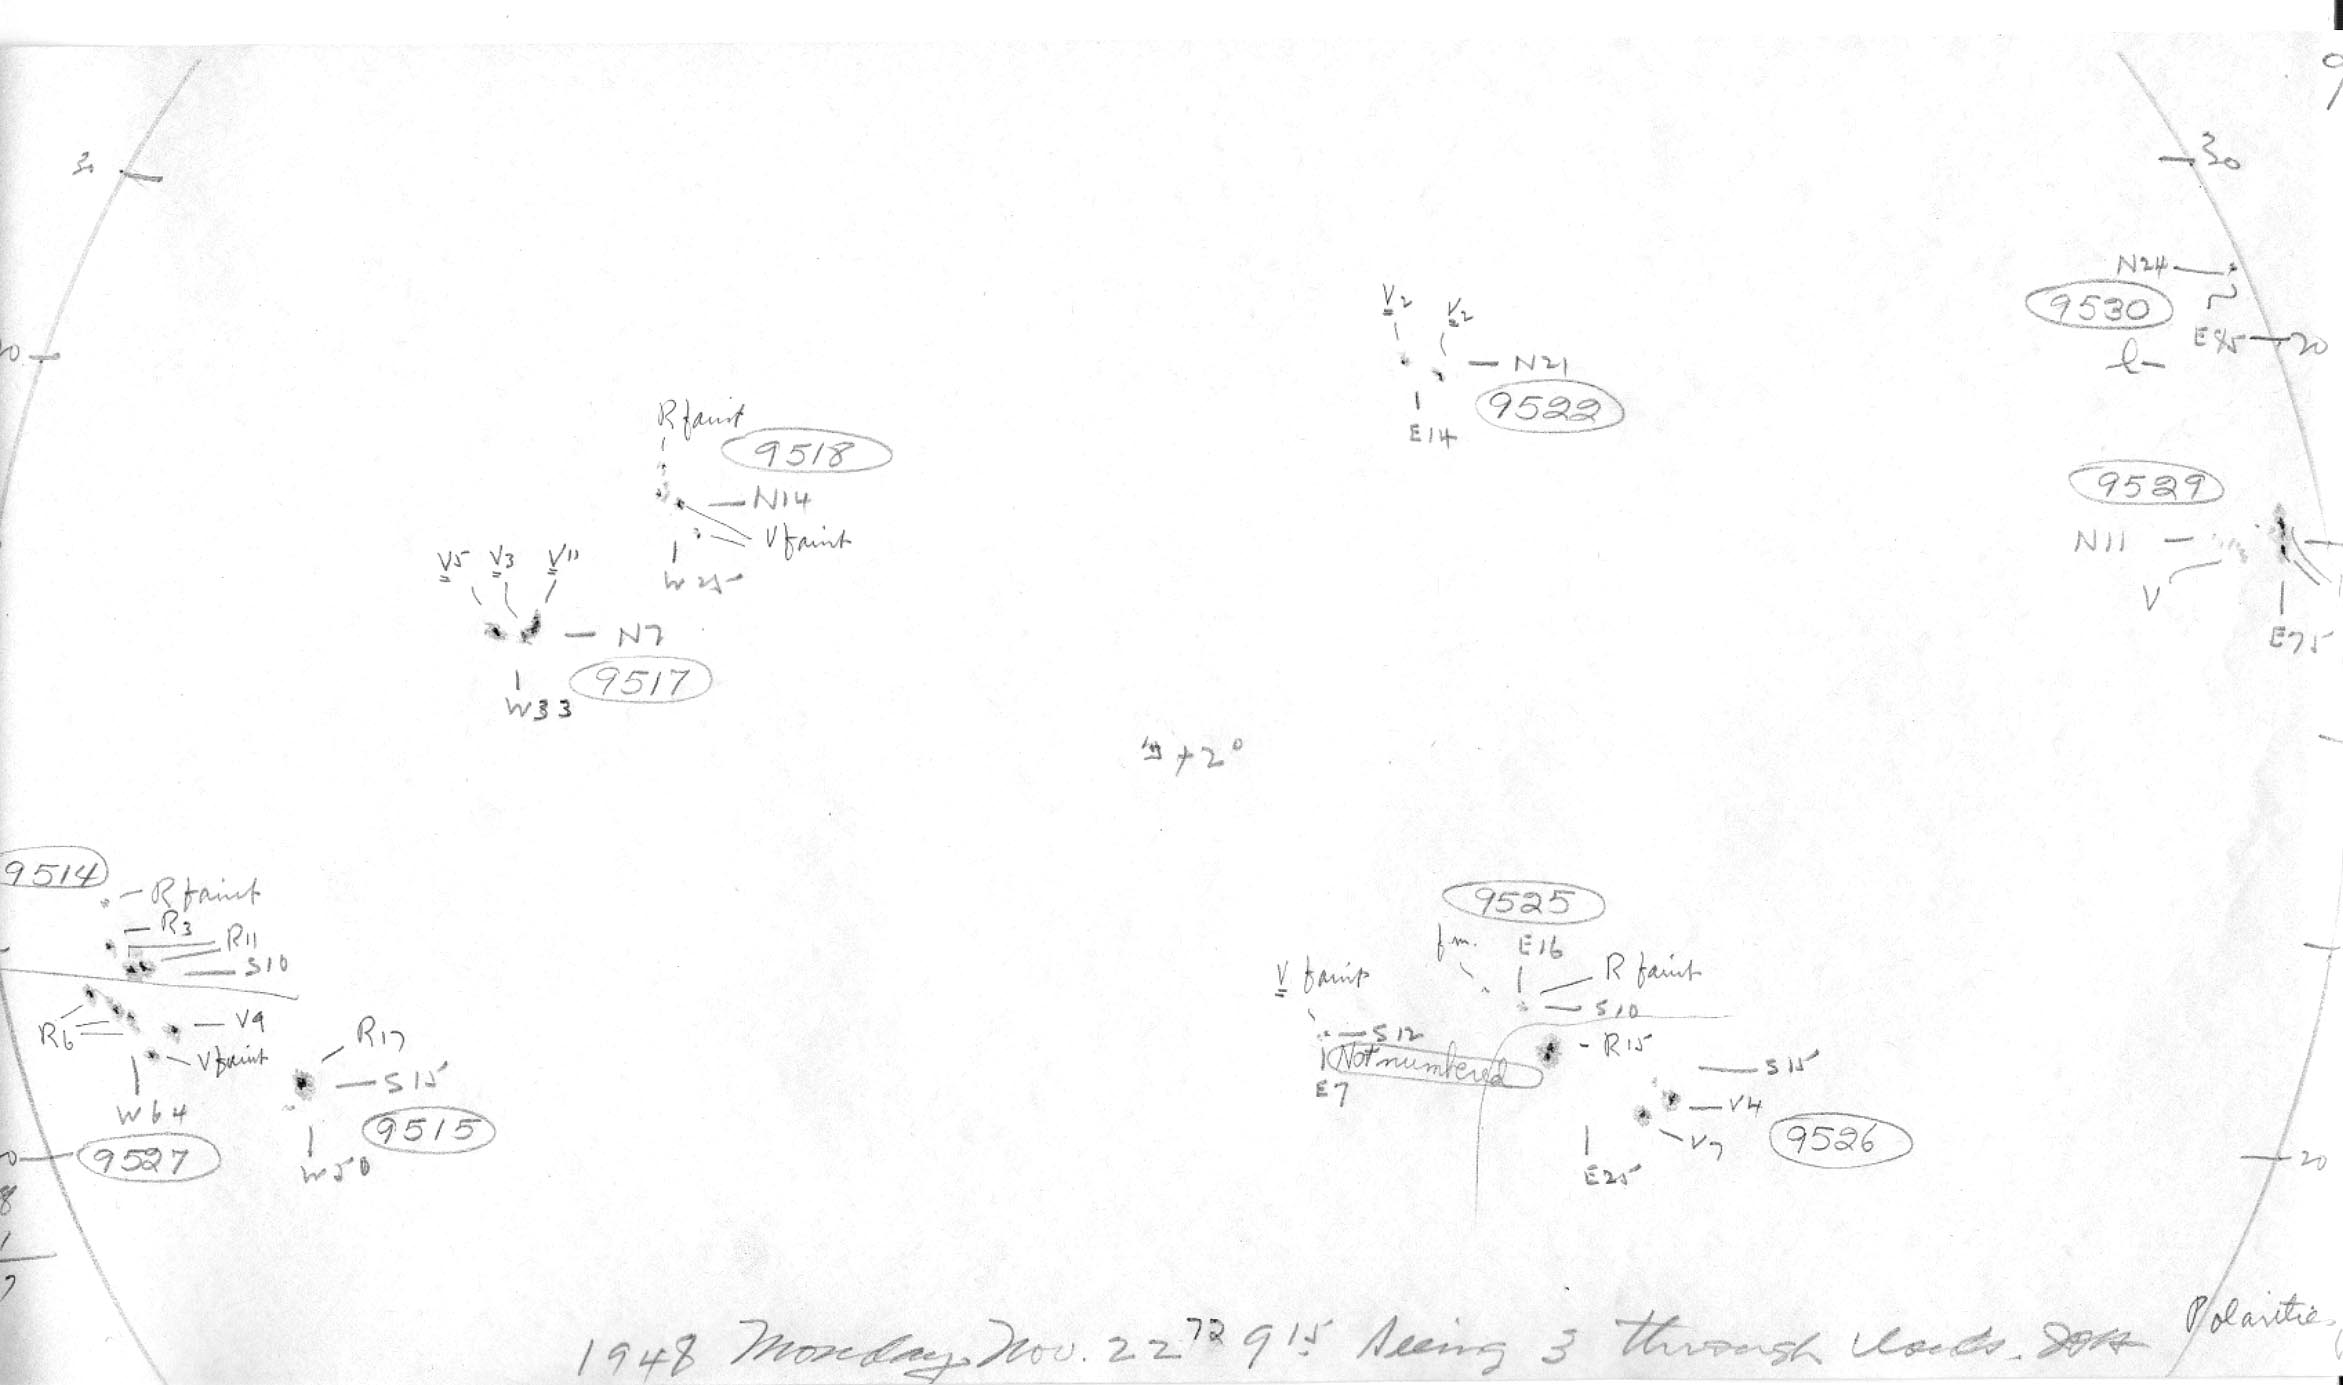 30
30
N24
9530
E85
20
V2
V2
N21
9522
E14
R faint
9518
N14
V faint
W25
9529
N11
V
E75
V5 V3 V11
N7
9517
W33
+2°
9514
R faint
R3
R11
S10
R6
V9
V faint
W64
9527
R17
S15
9515
W50
9525
f.m.
E16
R faint
S10
V faint
S12
Not numbered
E7
R15
S15
V4
V7
9526
E25
20
1948 Monday. Nov. 22.72 9 15 Seeing 3 through clouds.
Polarities